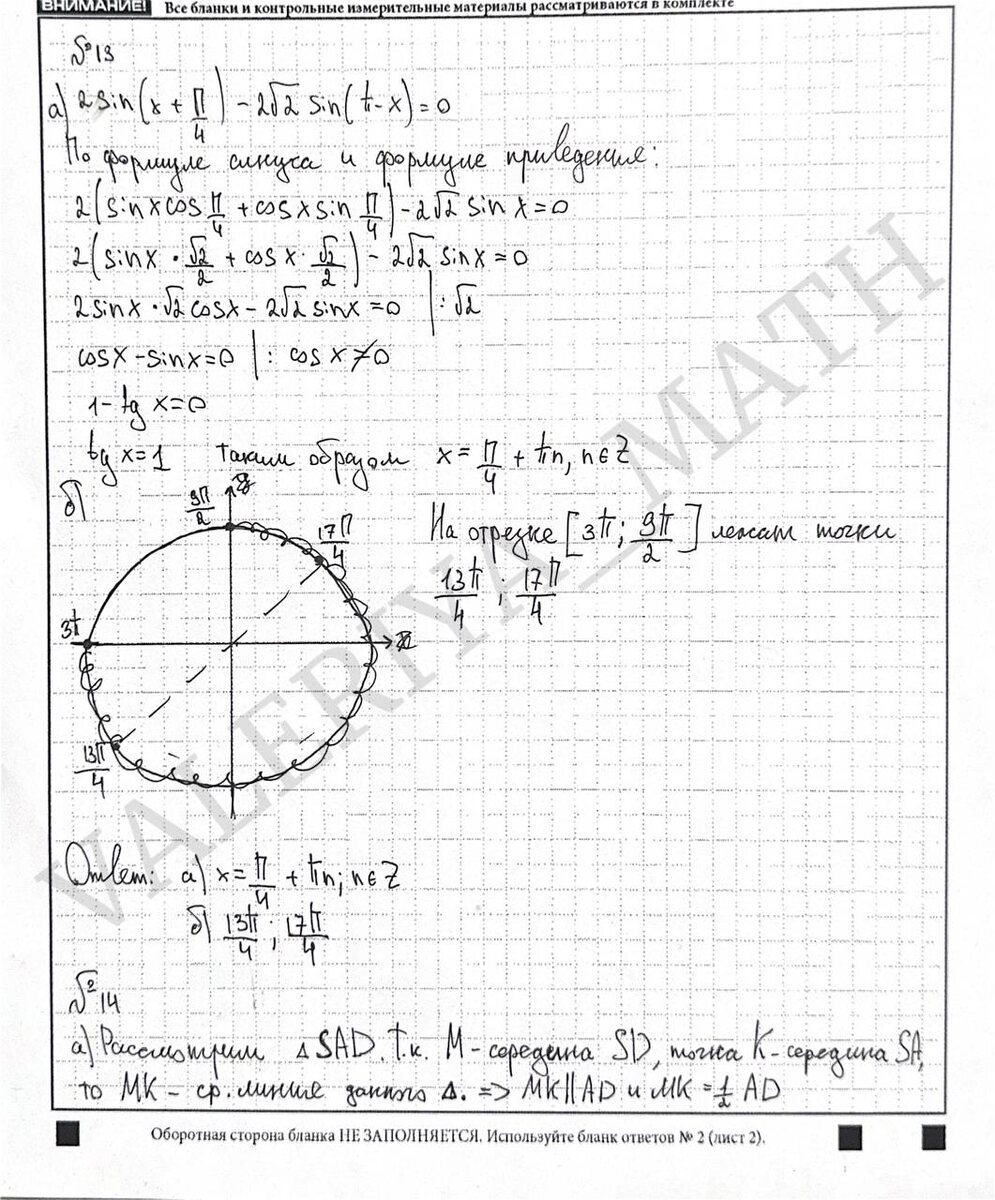 ВНИМАНИЕ! Все бланки и контрольные измерительные материалы рассматриваются в комплекте
№13
а) 2sin(x + π/4) - 2√2 sin(π-x) = 0
По формуле синуса и формуле приведения:
2(sinx cos π/4 + cosx sin π/4) - 2√2 sin x = 0
2(sinx · √2/2 + cos x · √2/2) - 2√2 sinx = 0
2sinx · √2 cosx - 2√2 sinx = 0 | : √2
cosx - sinx = 0 | : cos x ≠ 0
1 - tg x = 0
tg x = 1 Таким образом x = π/4 + πn, n∈Z
б)
9π/2
17π/4
3π
13π/4
На отрезке [3π; 9π/2] лежат точки
13π/4 ; 17π/4
Ответ: а) x = π/4 + πn; n∈Z
б) 13π/4 ; 17π/4
№14
а) Рассмотрим △SAD. Т.к. M - середина SD, точка K - середина SA,
то MK - ср. линия данного △. => MK||AD и MK = 1/2 AD
Оборотная сторона бланка НЕ ЗАПОЛНЯЕТСЯ. Используйте бланк ответов № 2 (лист 2).
VALERIYA_MATH